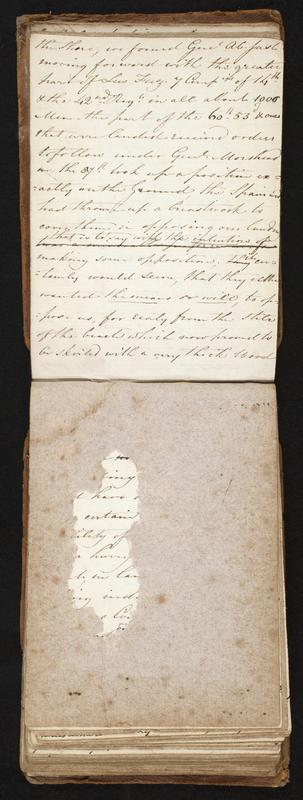 the Shore, we found Genl. Ab.
moving forward with the greater
part of his 7 Compys of 14th
& the 42nd Regt. in all about 1000
Men. the part of the 60th 53d &
that were landed received orders
to follow under Genl. Morshead
the 87th took up a position ex=
=actly on the Ground, the Spaniards
had thrown up a breastwork to
opposing our landing
that is to say with the intention of
making some opposition,
=tainly would seem, that they either
wanted the means or will, to op=
=pose us, for from the state
of the beach which now proved to
be skirted with a very thick Wood
ing
t have
certain
ility of
a
in
ing